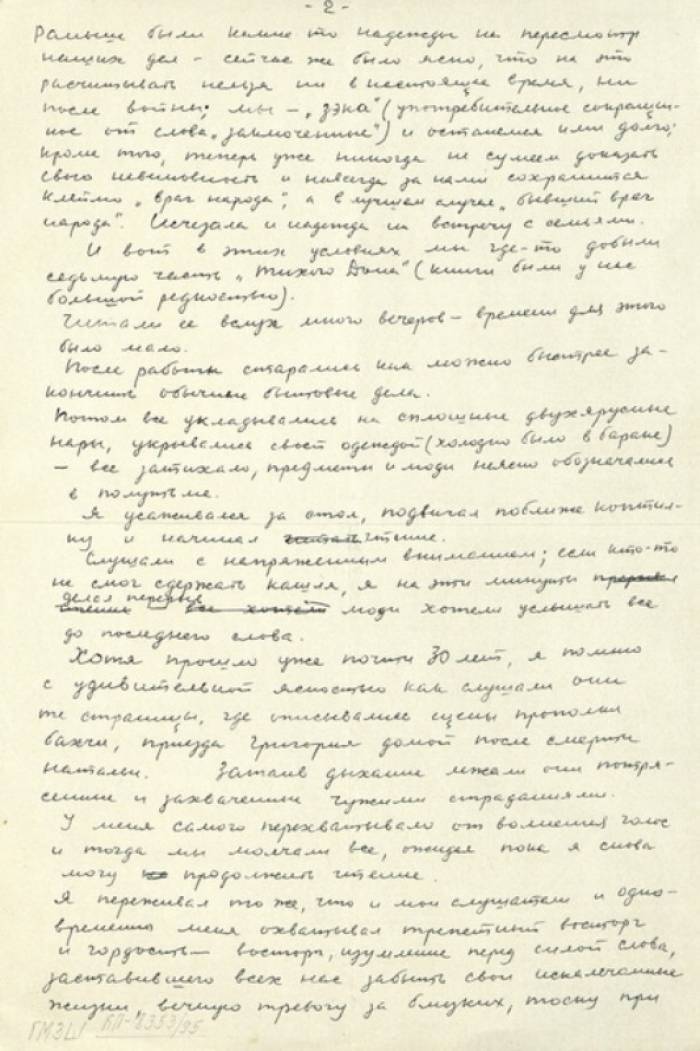 - 2 -
Раньше были какие то надежды на пересмотр
наших дел - сейчас же было ясно, что на это
расчитывать нельзя ни в настоящее время, ни
после войны; мы - „зэка" (употребительное сокращен-
ное от слова „заключенные") и останемся ими долго;
кроме того, теперь уже никогда не сумеем доказать
свою невиновность и навсегда за нами сохранится
клеймо „враг народа", а в лучшем случае „бывший враг
народа". Исчезала и надежда на встречу с семьями.
И вот в этих условиях мы где-то добыли
седьмую часть „Тихого Дона" (книги были у нас
большой редкостью).
Читали ее вслух много вечеров - времени для этого
было мало.
После работы старались как можно быстрее за-
кончить обычные бытовые дела.
Потом все укладывались на сплошные двухярусные
нары, укрывались своей одеждой (холодно было в бараке)
- все затихало, предметы и люди неясно обозначались
в полутьме.
Я усаживался за стол, подвигал поближе коптил-
ку и начинал читать чтение.
Слушали с напряженным вниманием; если кто-то
не смог сдержать кашля, я на эти минуты прерывал
делал перерыв
чтение - все хотели люди хотели услышать все
до последнего слова.
Хотя прошло уже почти 30 лет, я помню
с удивительной ясностью как слушали они
те страницы, где описывались сцены прополки
бахчи, приезда Григория домой после смерти
Натальи. Затаив дыхание лежали они потря-
сенные и захваченные чужими страданиями.
У меня самого перехватывало от волнения голос
и тогда мы молчали все, ожидая пока я снова
могу продолжить чтение.
Я переживал то же, что и мои слушатели и одно-
временно меня охватывал трепетный восторг
и гордость - восторг, изумление перед силой слова,
заставившего всех нас забыть свои искалеченные
жизни, вечную тревогу за близких, тоску при
ГМЗШ КП-8353/95